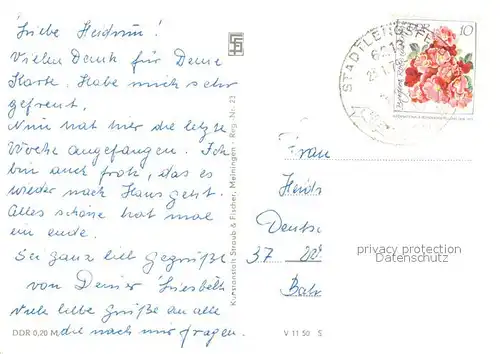 Liebe Heidrun!
Vielen Dank für Deine
Karte. Habe mich sehr
gefreut.
Nun hat hier die letzte
Woche angefangen. Ich
bin auch froh, das es
wieder nach Haus geht.
Alles schöne hat mal
ein ende.
Sei ganz lieb Gegrüßt
von Deiner Liesbeth
Viele liebe Grüße an alle
die nach mir fragen.
DDR 0,20 M
Kunstanstalt Straub & Fischer, Meiningen - Reg.-Nr. 23
V 11 50 S
STADTLENGSFELD
DDR 10
Frau
Heid
Deuts
37
privacy protection
Datenschutz